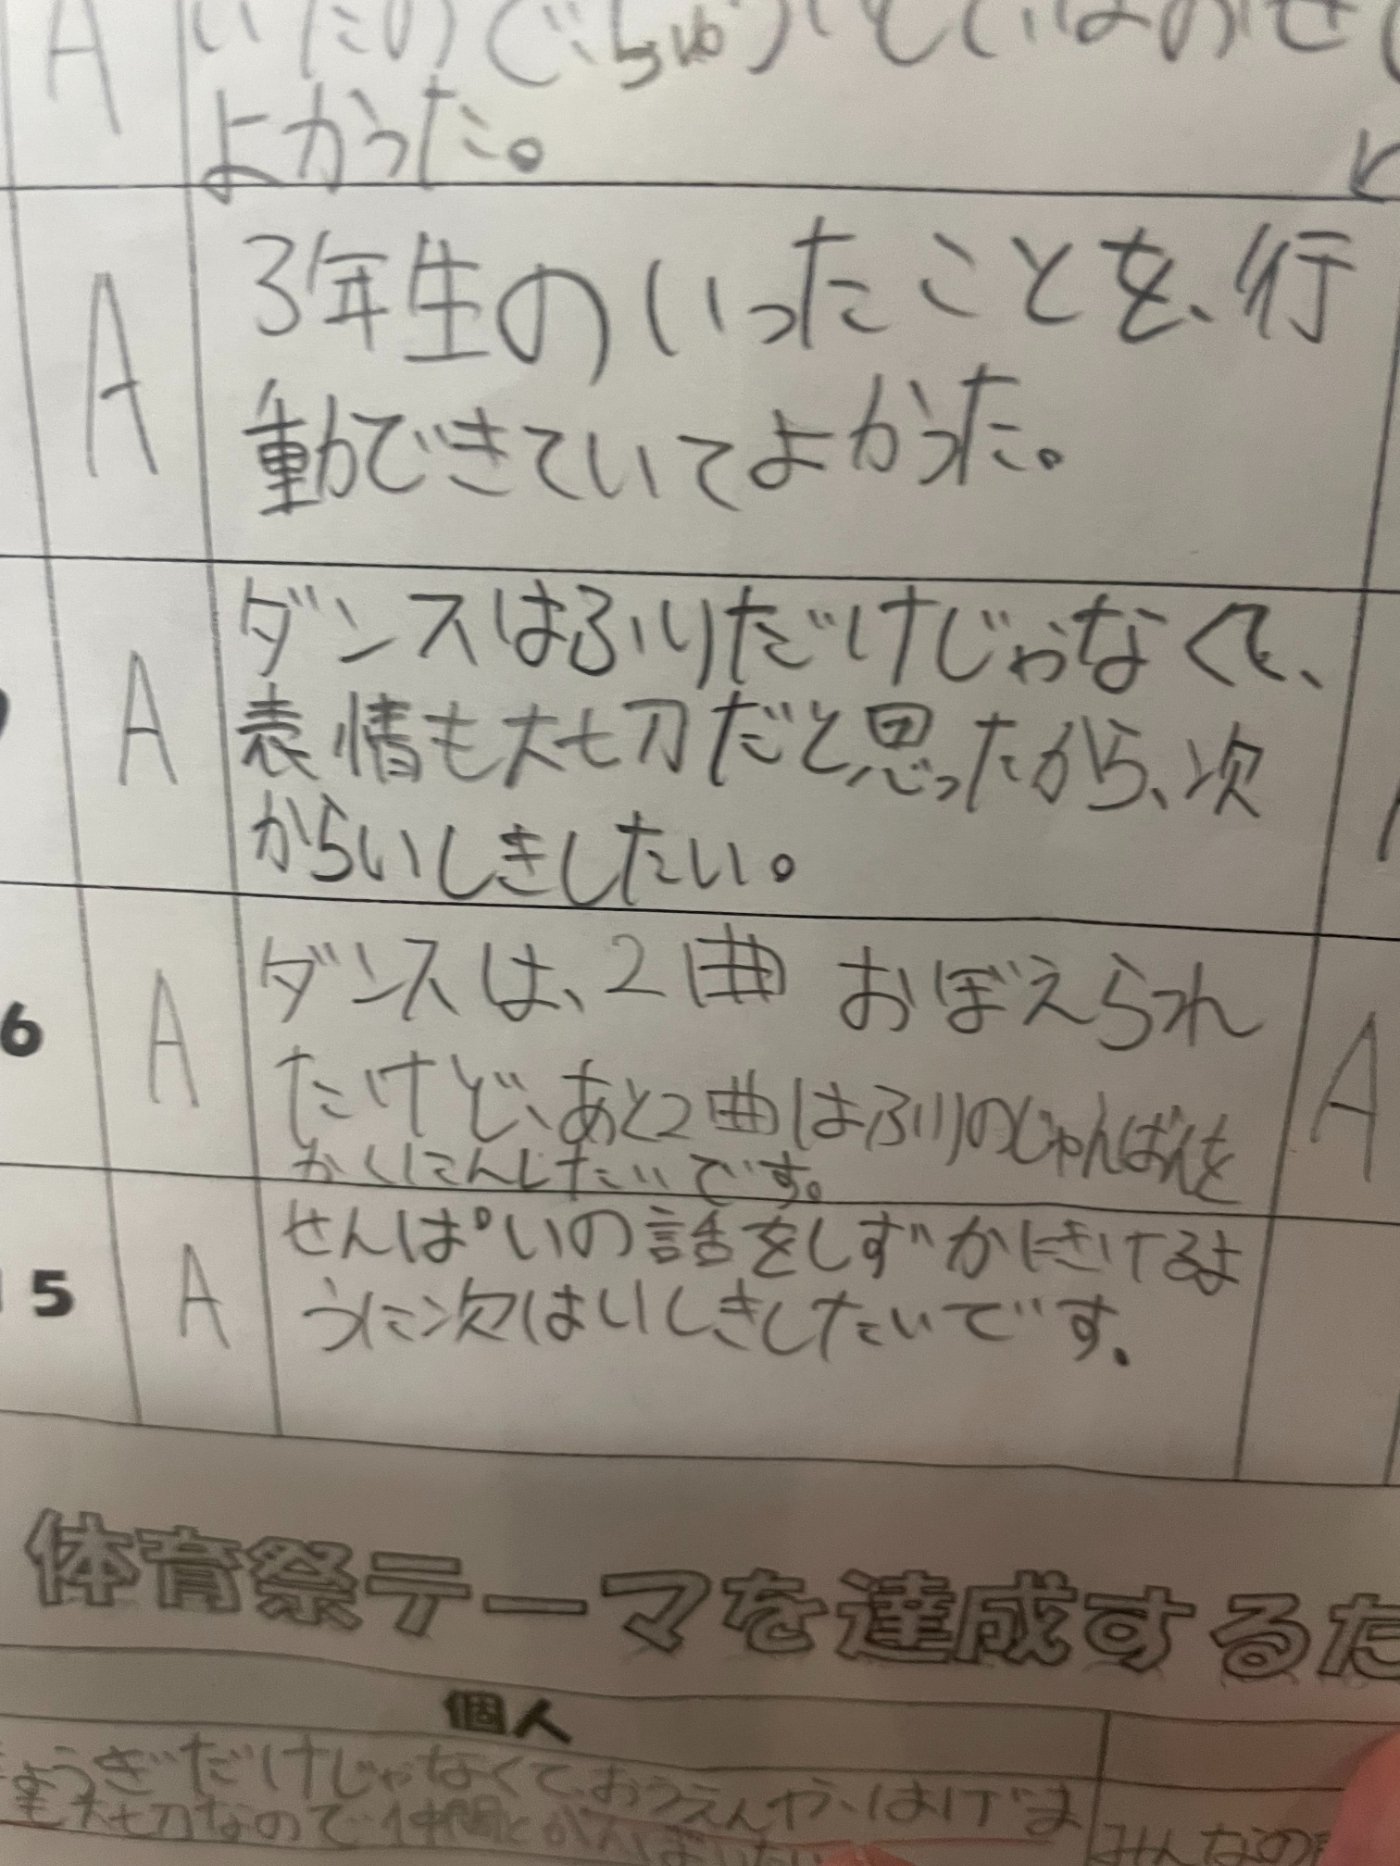 A
よかった。
A
3年生のいったことを、行
動できていてよかった。
A
ダンスはふりだけじゃなくて、
表情も大切だと思ったから、次
からいしきしたい。
6
A
ダンスは、2曲 おぼえられ
たけど、あと2曲はふりのじゅんばんを
かくにんしたいです。
A
15
A
せんぱいの話をしずかにきけるよ
うに次はいしきしたいです。
体育祭テーマを達成するた
個人
きょうぎだけじゃなくて、おうえんや、はげま
も大切なので仲間とがんばりたい
みんなの